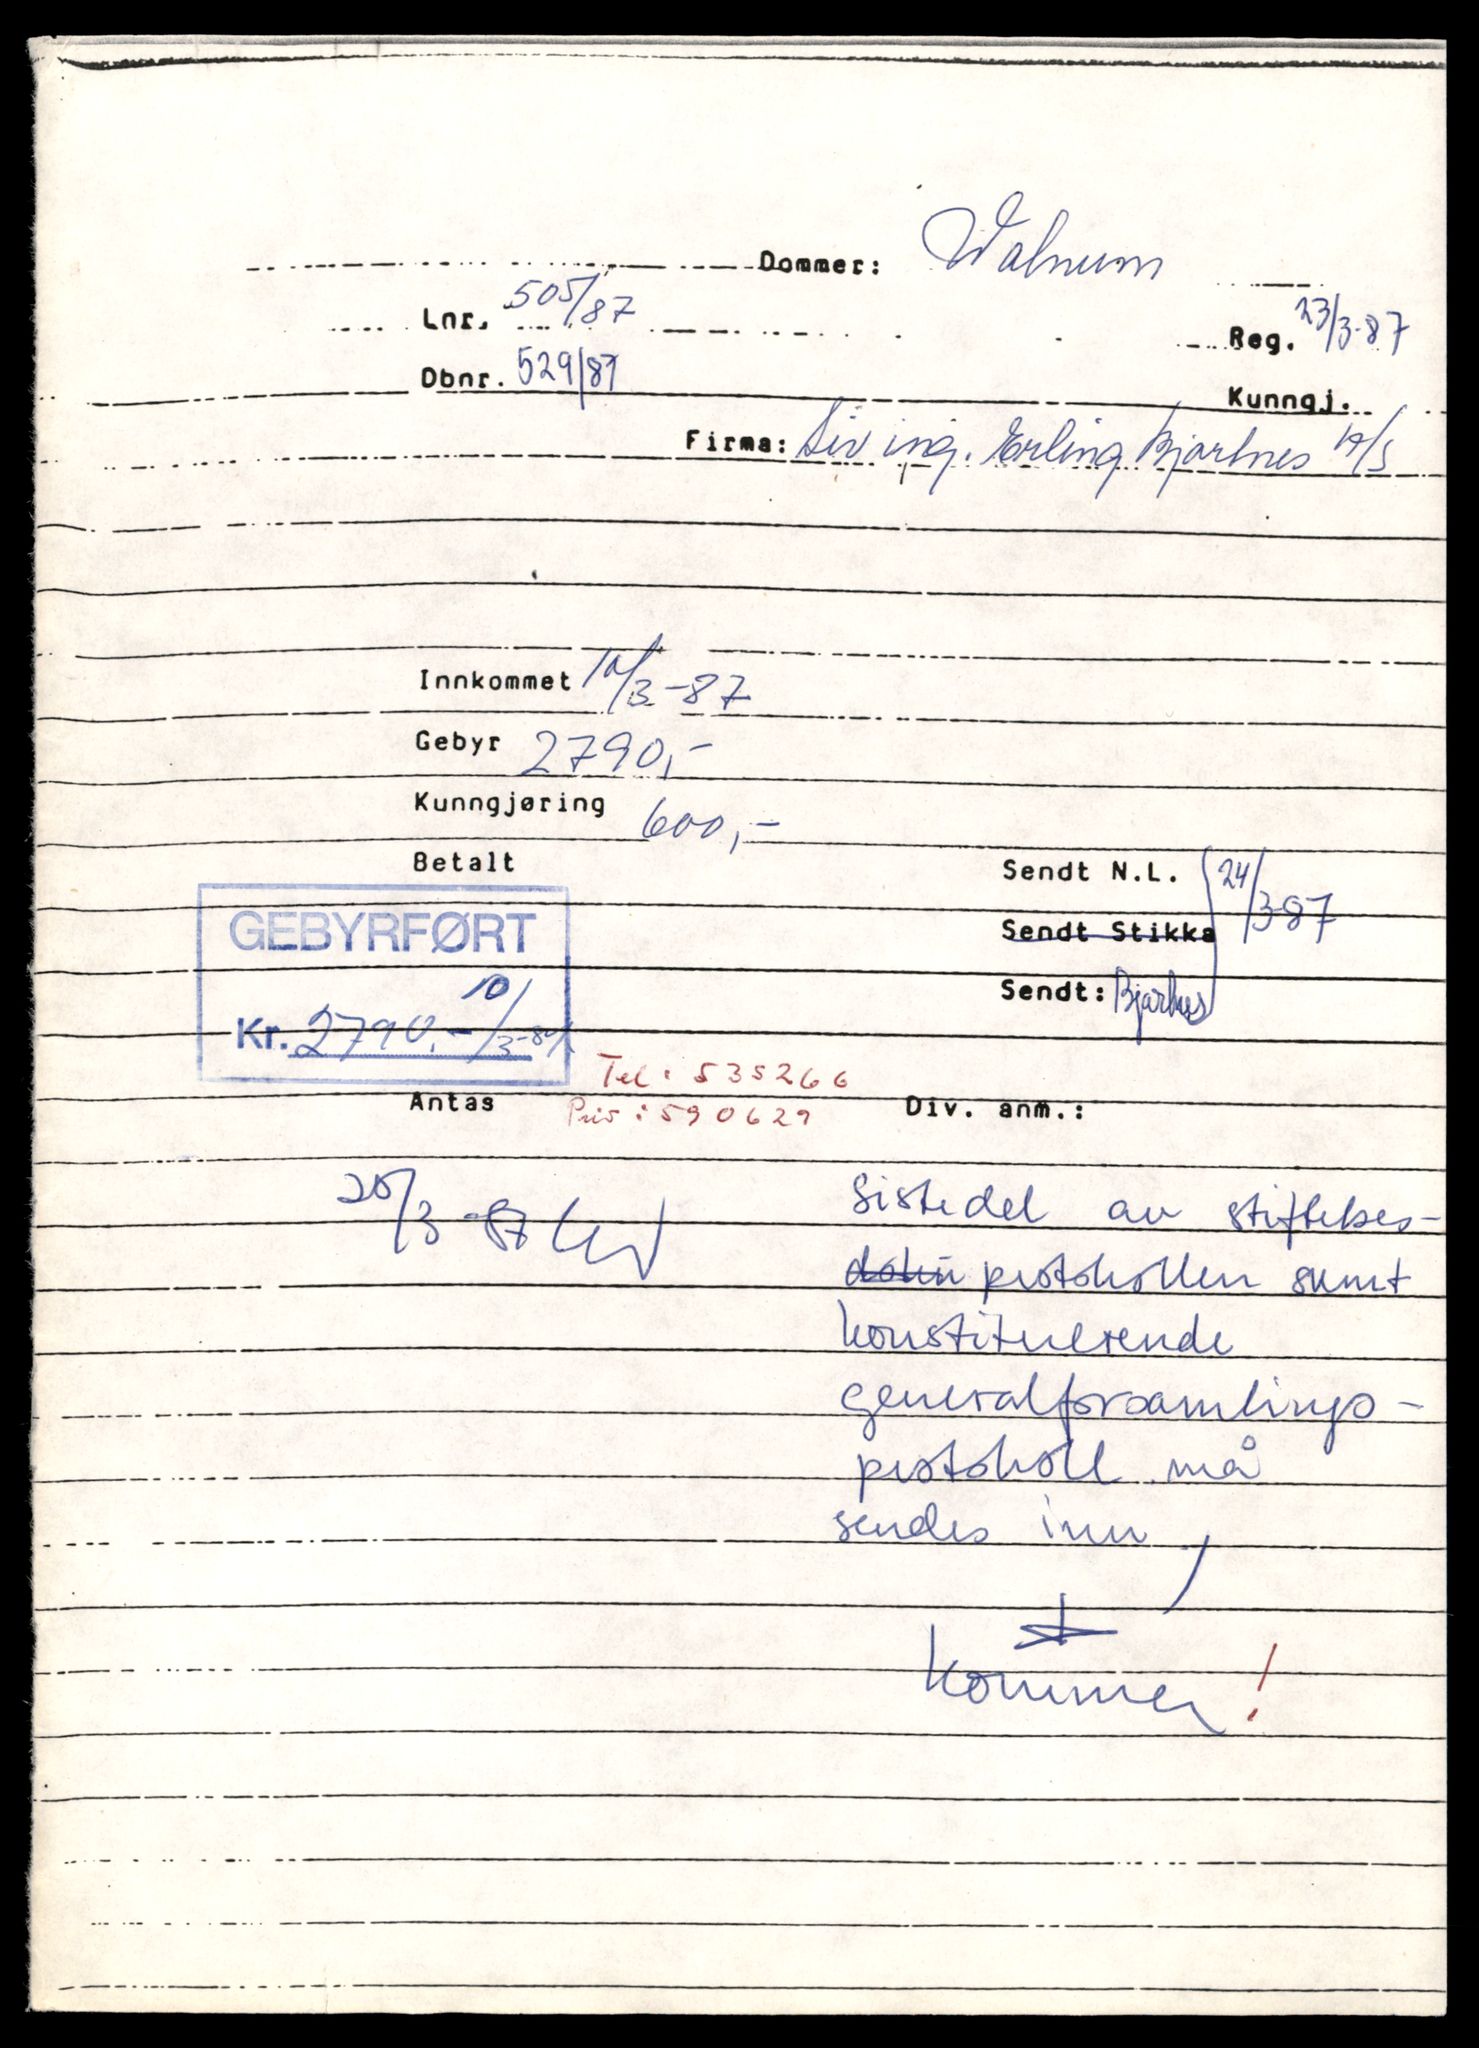 Dommer: Walnum
Lnr. 505/87
Reg. 23/3-87
Dbnr. 529/87
Kunngj.
Firma: Siv ing. Erling Bjartnes A/S
Innkommet 10/3-87
Gebyr 2790,-
Kunngjøring 600,-
Betalt
Sendt N.L. 24/3-87
Sendt Stikka
Sendt: Bjartnes
GEBYRFØRT
Kr. 2790,- 10/3-87
Tel: 535266
Antas Priv: 590629 Div. anm.:
20/3-87
Siste del av stiftelses-
protokollen samt
konstituerende
generalforsamlings-
protokoll må
sendes inn
kommer!